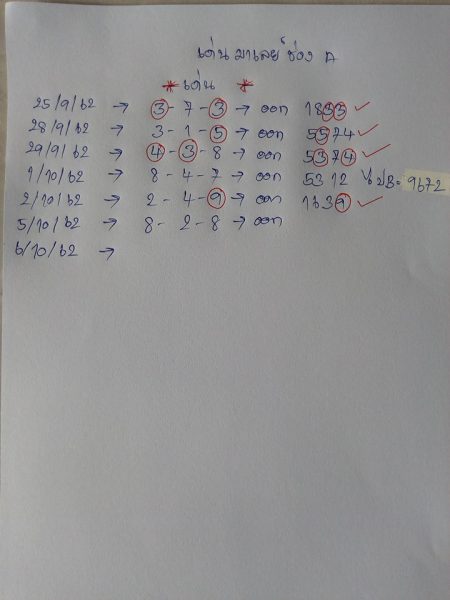 เด่น มาเลย์ ช่อง A
* เด่น *
25/9/62 → 3-7-3 → ออก 1833 ✓
28/9/62 3-1-5 → ออก 5574 ✓
29/9/62 → 4-3-8 → ออก 5374 ✓
1/10/62 → 8-4-7 → ออก 5312 9672
2/10/62 → 2-4-9 → ออก 1639 ✓
5/10/62 → 8-2-8 → ออก
6/10/62 →